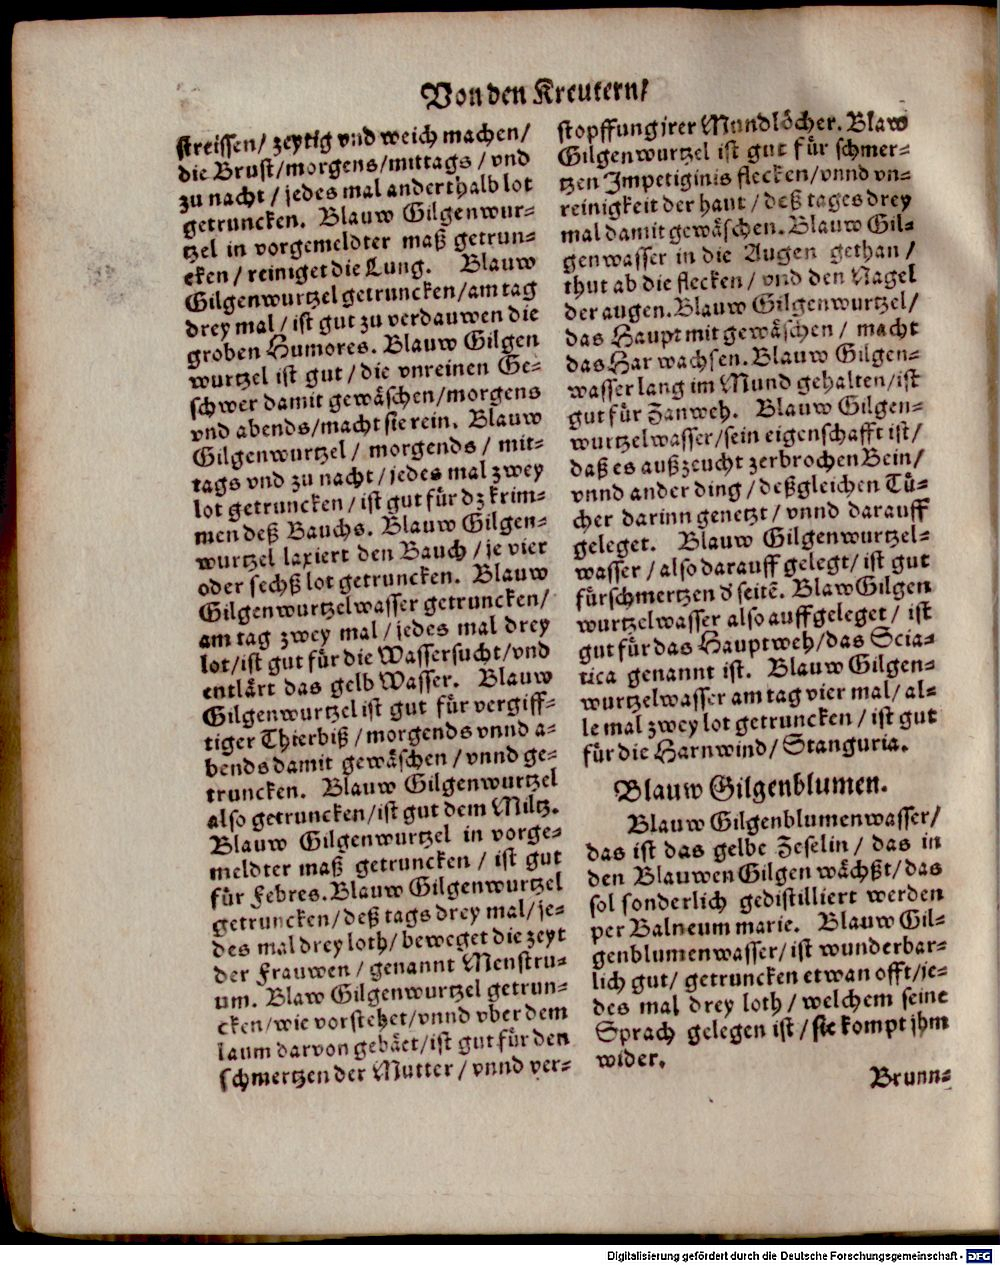 Von den Kreutern/
streissen/ zeytig vnd weich machen/
die Brust/morgens/mittags / vnd
zu nacht / jedes mal anderthalb lot
getruncken. Blauw Gilgenwur-
tzel in vorgemeldter maß getrun-
cken / reiniget die Lung. Blauw
Gilgenwurtzel getruncken/am tag
drey mal / ist gut zu verdauwen die
groben Humores. Blauw Gilgen
wurtzel ist gut / die vnreinen Ge-
schwer damit gewäschen/morgens
vnd abends/macht sie rein. Blauw
Gilgenwurtzel / morgends / mit-
tags vnd zu nacht / jedes mal zwey
lot getruncken / ist gut für dz krim-
men deß Bauchs. Blauw Gilgen-
wurtzel laxiert den Bauch / je vier
oder sechß lot getruncken. Blauw
Gilgenwurtzelwasser getruncken/
am tag zwey mal / jedes mal drey
lot/ist gut für die Wassersucht/vnd
entlärt das gelb Wasser. Blauw
Gilgenwurtzel ist gut für vergiff-
tiger Thierbiß / morgends vnnd a-
bends damit gewäschen / vnnd ge-
truncken. Blauw Gilgenwurtzel
also getruncken/ist gut dem Miltz.
Blauw Gilgenwurtzel in vorge-
meldter maß getruncken / ist gut
für Febres. Blauw Gilgenwurtzel
getruncken/deß tags drey mal/je-
des mal drey loth/beweget die zeyt
der Frauwen / genannt Menstru-
um. Blaw Gilgenwurtzel getrun-
cken/wie vorstehet/vnnd vber dem
laum darvon gebäet/ist gut für den
schmertzen der Mutter / vnnd ver-
stopffung jrer Mundlöcher. Blaw
Gilgenwurtzel ist gut für schmer-
tzen Impetiginis flecken/vnnd vn-
reinigkeit der haut / deß tages drey
mal damit gewäschen. Blauw Gil-
genwasser in die Augen gethan /
thut ab die flecken / vnd den Nagel
der augen. Blauw Gilgenwurtzel/
das Haupt mit gewäschen / macht
das Har wachsen. Blauw Gilgen-
wasser lang im Mund gehalten/ist
gut für Zanweh. Blauw Gilgen-
wurtzelwasser/sein eigenschafft ist/
daß es außzeucht zerbrochen Bein/
vnnd ander ding / deßgleichen Tü-
cher darinn genetzt / vnnd darauff
geleget. Blauw Gilgenwurtzel-
wasser / also darauff gelegt/ ist gut
für schmertzen d' seitē. Blaw Gilgen
wurtzelwasser also auffgeleget / ist
gut für das Hauptweh/das Scia-
tica genannt ist. Blauw Gilgen-
wurtzelwasser am tag vier mal / al-
le mal zwey lot getruncken / ist gut
für die Harnwind/ Stanguria.
Blauw Gilgenblumen.
Blauw Gilgenblumenwasser/
das ist das gelbe Zeselin / das in
den Blauwen Gilgen wächßt/das
sol sonderlich gedistilliert werden
per Balneum marie. Blauw Gil-
genblumenwasser/ist wunderbar-
lich gut/ getruncken etwan offt/je-
des mal drey loth / welchem seine
Sprach gelegen ist / sie kompt jhm
wider.
Brunn-
Digitalisierung gefördert durch die Deutsche Forschungsgemeinschaft - DFG